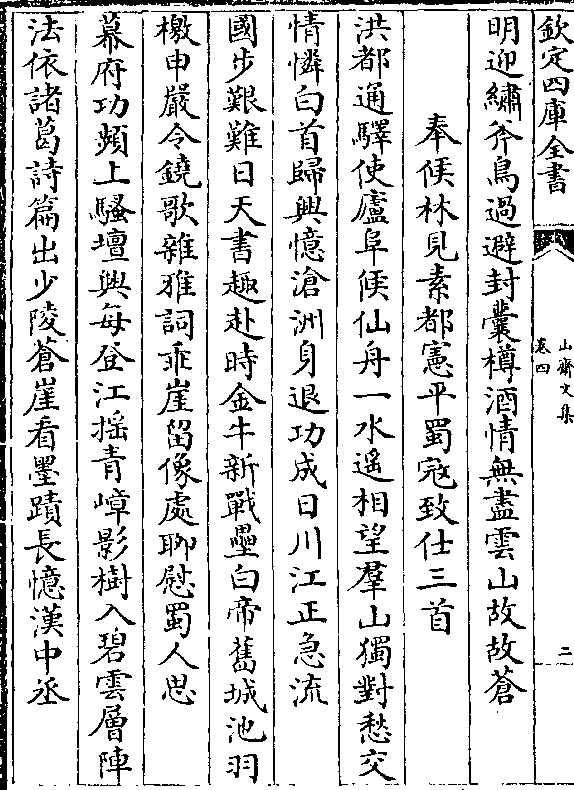 欽定四庫全書
山齋文集
卷四
二
明迎繡斧鳥過避封囊樽酒情無盡雲山故故蒼
奉候林見素都憲平蜀宼致仕三首
洪都通驛使廬阜候仙舟一水遥相望羣山獨對愁交
情憐白首歸興憶滄洲身退功成日川江正急流
國步艱難日天書趣赴時金牛新戰壘白帝舊城池羽
檄申嚴令鐃歌雜雅詞乖崖留像處聊慰蜀人思
幕府功頻上騷壇興每登江摇青嶂影樹入碧雲層陣
法依諸葛詩篇出少陵蒼崖看墨蹟長憶漢中丞